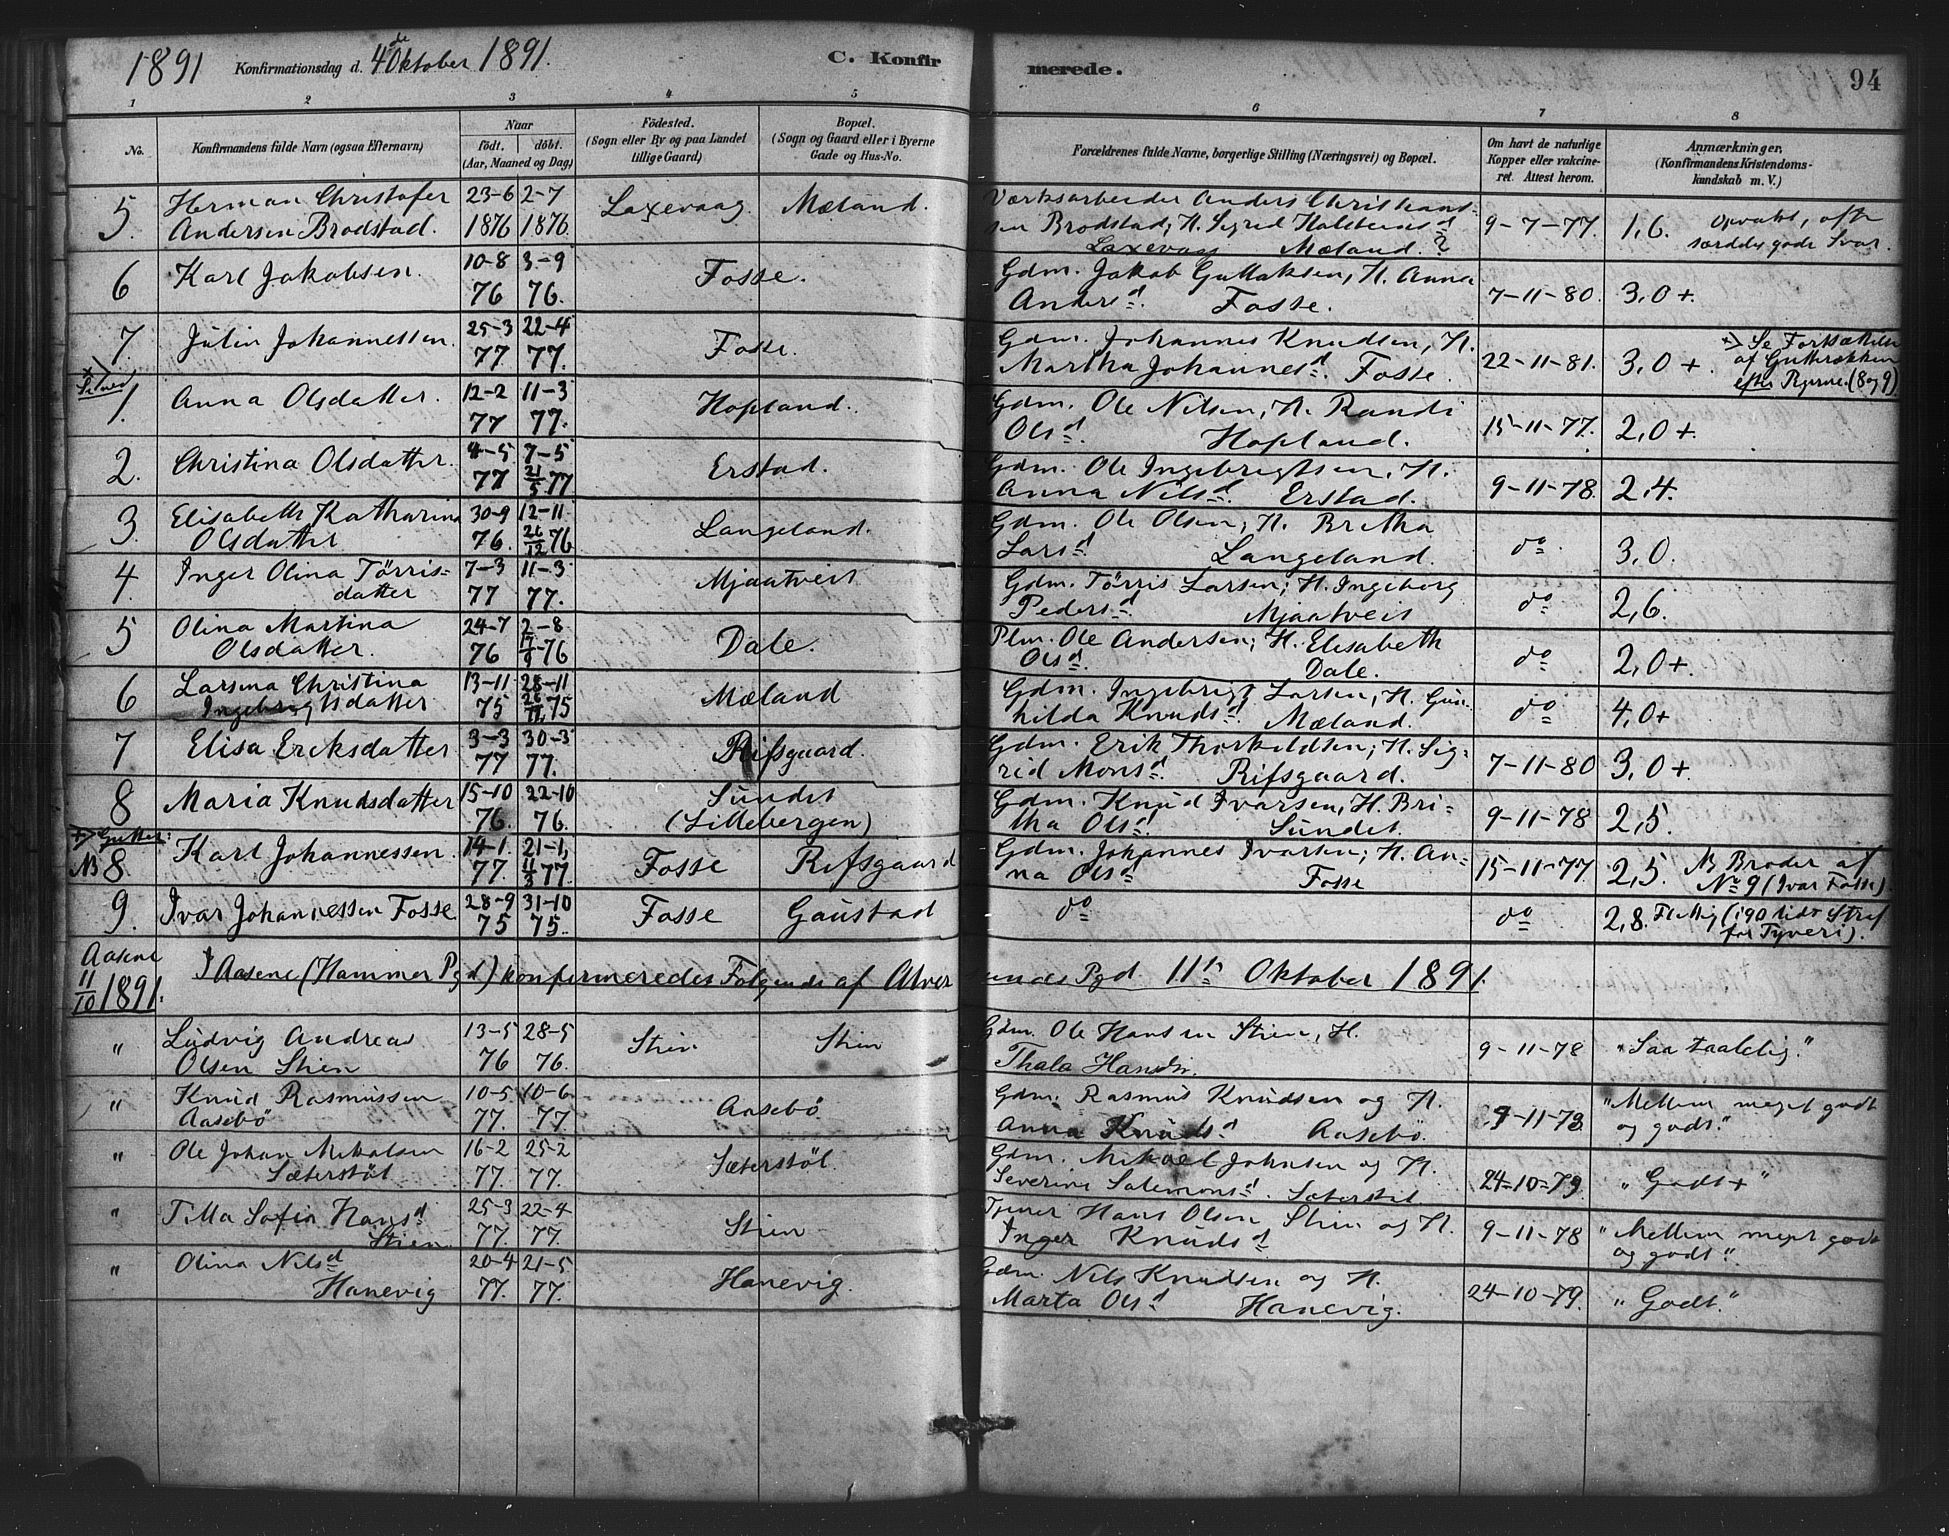 1891 Konfirmationsdag d. 4de Oktober 1891. C. Konfirmerede. 94
1 2 3 4 5 6 7 8
No. Konfirmandens fulde Navn (ogsaa Efternavn) Naar født. døbt. (Aar, Maaned og Dag) Fødested. (Sogn eller By og paa Landet tillige Gaard) Bopæl. (Sogn og Gaard eller i Byerne Gade og Hus-No. Forældrenes fulde Navne, borgerlige Stilling (Næringsvei) og Bopæl. Om havt de naturlige Kopper eller vakcineret. Attest herom. Anmærkninger, (Konfirmandens Kristendomskundskab m. V.)
5. Herman Christofer 23-6 2-7 Laxevaag Mæland. Værksarbeider Anders Christians-
Andersen Brodstad. 1876 1876. sen Brodstad; H. Sigred Halsteinsd 9-7-77. 1,6. Opvakt, ofte
Laxevaag Mæland.? særdeles gode Svar.
6 Karl Jakobsen. 10-8 3-9 Fosse. Gdm. Jakob Guttaksen, H. Anna
76 76. Andersd. Fosse. 7-11-80. 3,0+.
7. Julin Johannessen. 25-3 22-4 Fosse. Gdm. Johannes Knudsen, H.
77 77. Martha Johannesd. Fosse. 22-11-81. 3,0+. +> Se Fortsættelse af Gutterækken efter Pigerne. (8 og 9)
+> Se ned
1. Anna Olsdatter. 12-2 11-3 Hopland. Gdm. Ole Nilsen, H. Randi
77 77. Olsd. Hopland. 15-11-77. 2,0+.
2. Christina Olsdatter. 4-5 7-5 Erstad. Gdm. Ole Ingebrigtsen, H.
77 21/5 77 Anna Nilsd. Erstad. 9-11-78. 2,4.
3. Elisabeth Katharina 30-9 12-11 Langeland. Gdm. Ole Olsen, H. Bretha
Olsdatter 76. 26/12 76 Larsd. Langeland. do 3,0.
4. Inger Olina Tørris- 7-3 11-3 Mjaatveit Gdm. Tørris Larsen; H. Ingeborg
datter 77 77. Pedersd. Mjaatveit do 2,6.
5 Olina Martina 24-7 2-8 Dale. Plm. Ole Andersen; H. Elisabeth
Olsdatter. 76 17/9 76 Olsd. Dale. do 2,0+.
6 Larsina Christina 13-11 28-11 Mæland Gdm. Ingebrigt Larsen, H. Gun-
Ingebrigtsdatter 75 75 hilda Knudsd. Mæland. do 4,0+
7 Elisa Eriksdatter 3-3 30-3 Rifsgaard. Gdm. Erik Thorkildsen; H. Sig-
77 77. rid Monsd. Rifsgaard. 7-11-80 3,0+.
8 Maria Knudsdatter 15-10 22-10 Sundet Gdm. Knud Ivarsen, H. Bri-
76. 76. (Lillebergen) tha Olsd. Sundet. 9-11-78 2,5.
+> Gutter:
NB 8. Karl Johannessen. 14-1. 21-1, Fosse Rifsgaard Gdm. Johannes Ivarsen; H. An-
77. 4/3 77. na Olsd Fosse 15-11-77. 2,5. NB Broder af No 9 (Ivar Fosse).
9. Ivar Johannessen Fosse. 28-9 31-10 Fosse Gaustad do do 2,8.
75 75. (i 90 lidt Straf for Tyveri).
Aasene
11/10 1891. I Aasene (Hammer Pgd) konfirmeredes Følgende af Alversunds Pgd 11te Oktober 1891.
" Ludvig Andreas 13-5 28-5 Stien Stien Gdm. Ole Hansen Stien, H.
Olsen Stien 76 76. Thala Hansdr. 9-11-78 "Saa taalelig."
" Knud Rasmussen 10-5 10-6 Aasebø Gdm. Rasmus Knudsen og H.
Aasebø 77. 77. Anna Knudsd Aasebø. "Mellem meget godt og godt."
" Ole Johan Mikalsen 16-2 25-2 Sæterstøl. Gdm. Mikael Johnsen og H.
Sæterstøl 77. 77. Severine Salemonsd. Sæterstøl 24-10-79. "Godt+"
" Tilla Sofia Hansd 25-3 22-4 Stien Hans Olsen Stien og H.
Stien 77. 77. Inger Knudsd 9-11-78 "Mellem meget godt og godt."
" Olina Nilsd 20-4 21-5 Hanevig. Gdm. Nils Knudsen og H.
Hanevig 77. 77. Marta Olsd Hanevig. 24-10-79. "Godt."